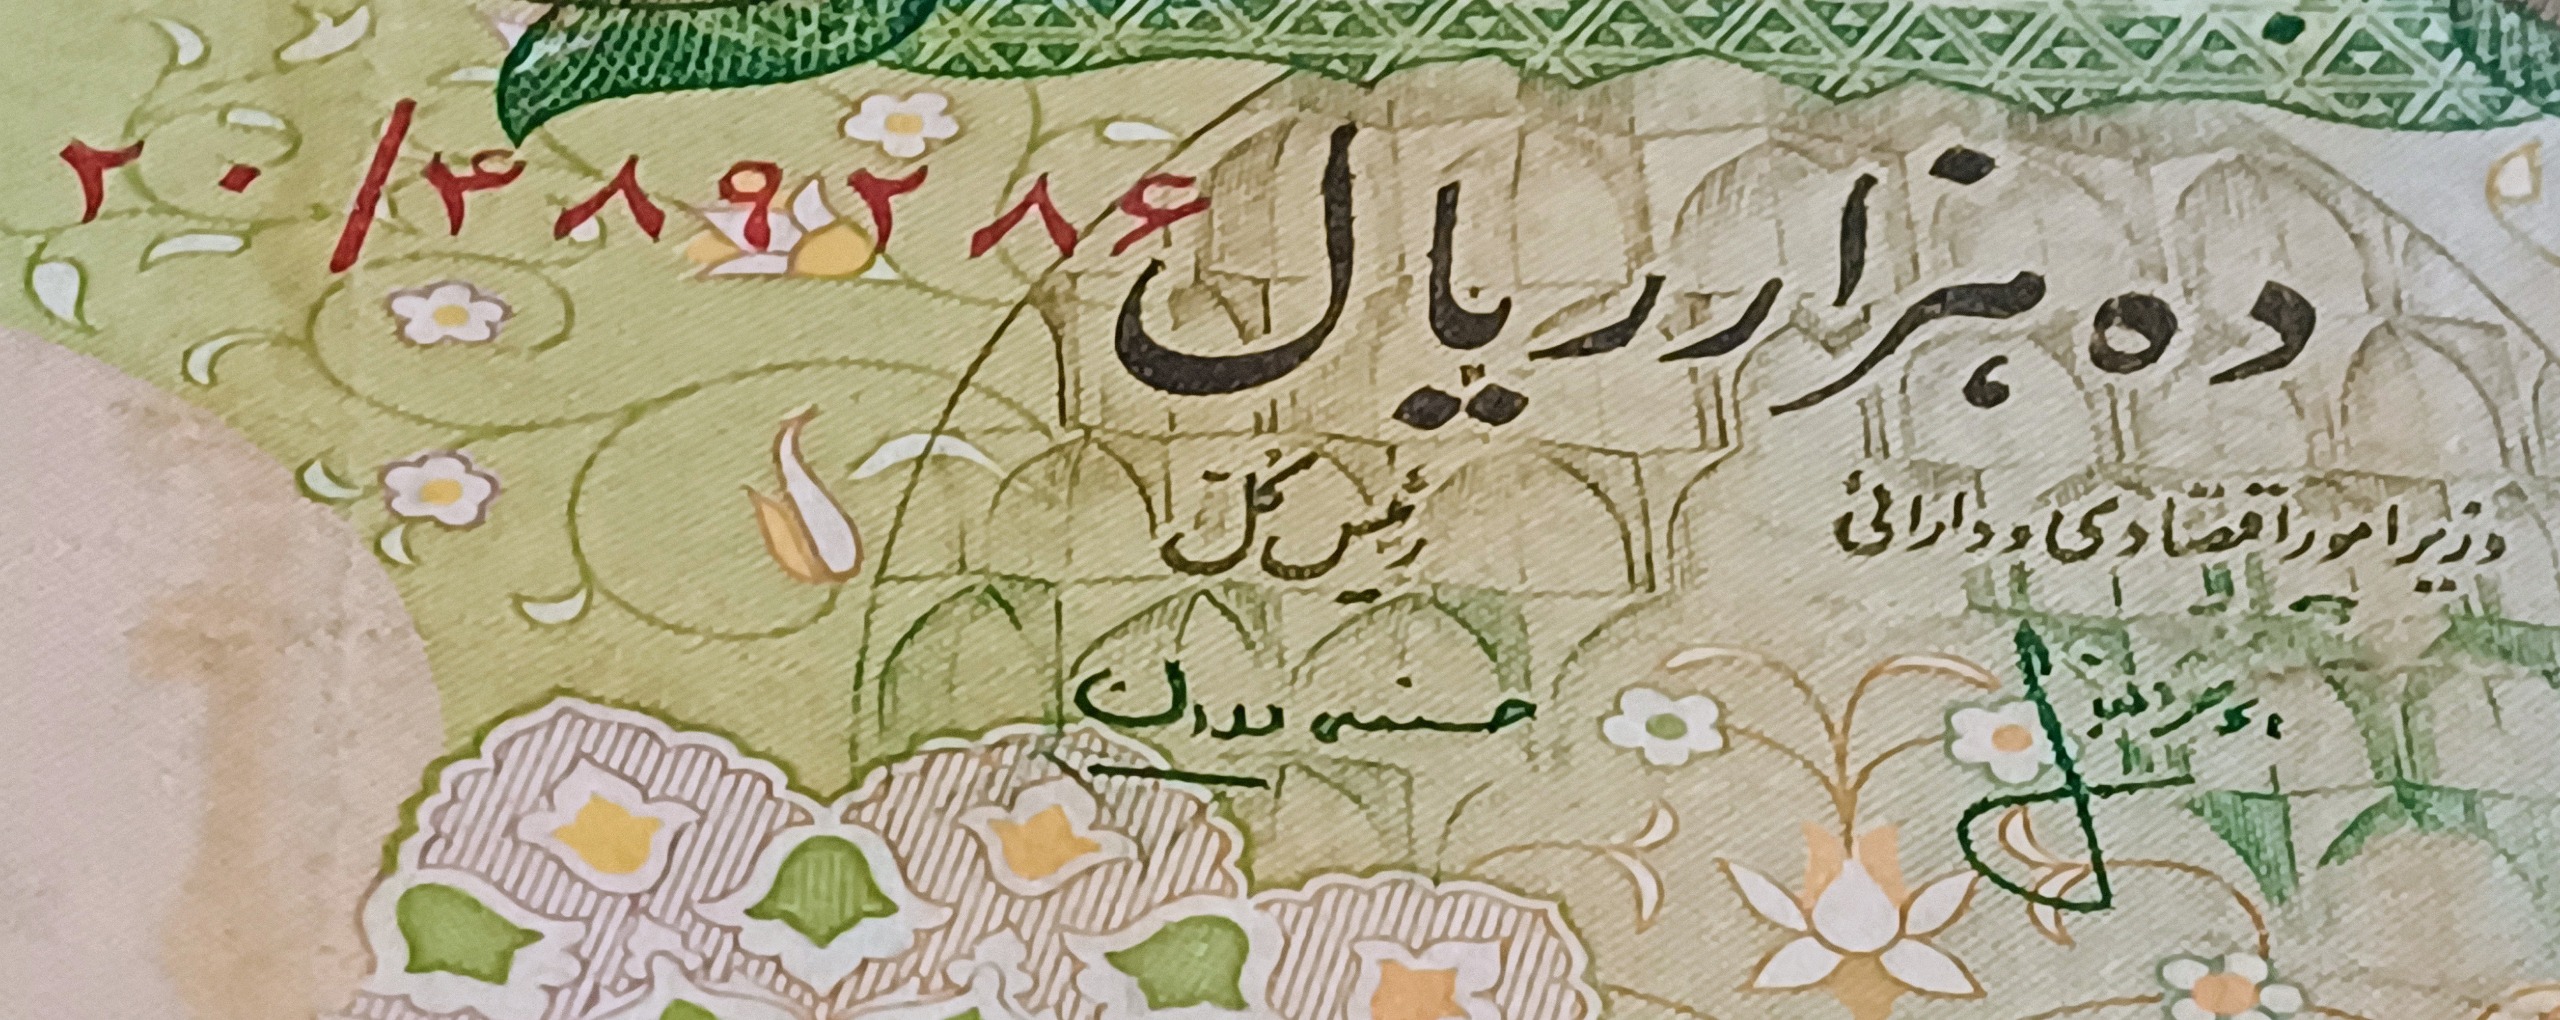 ۲۰/۴۸۹۲۸۶
ده هزار ریال
وزیر امور اقتصادی و دارائی
رئیس کل